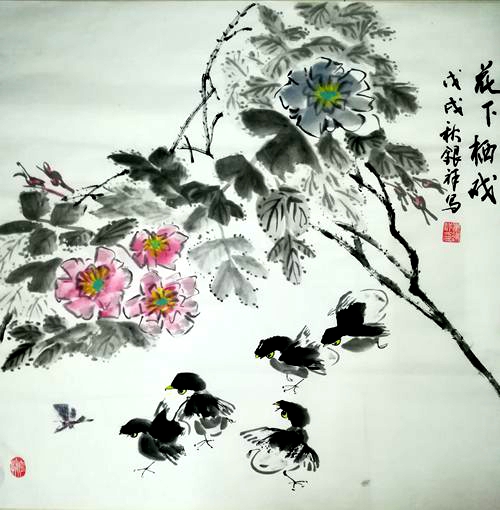 花下栖戏
戊戌秋银祥写